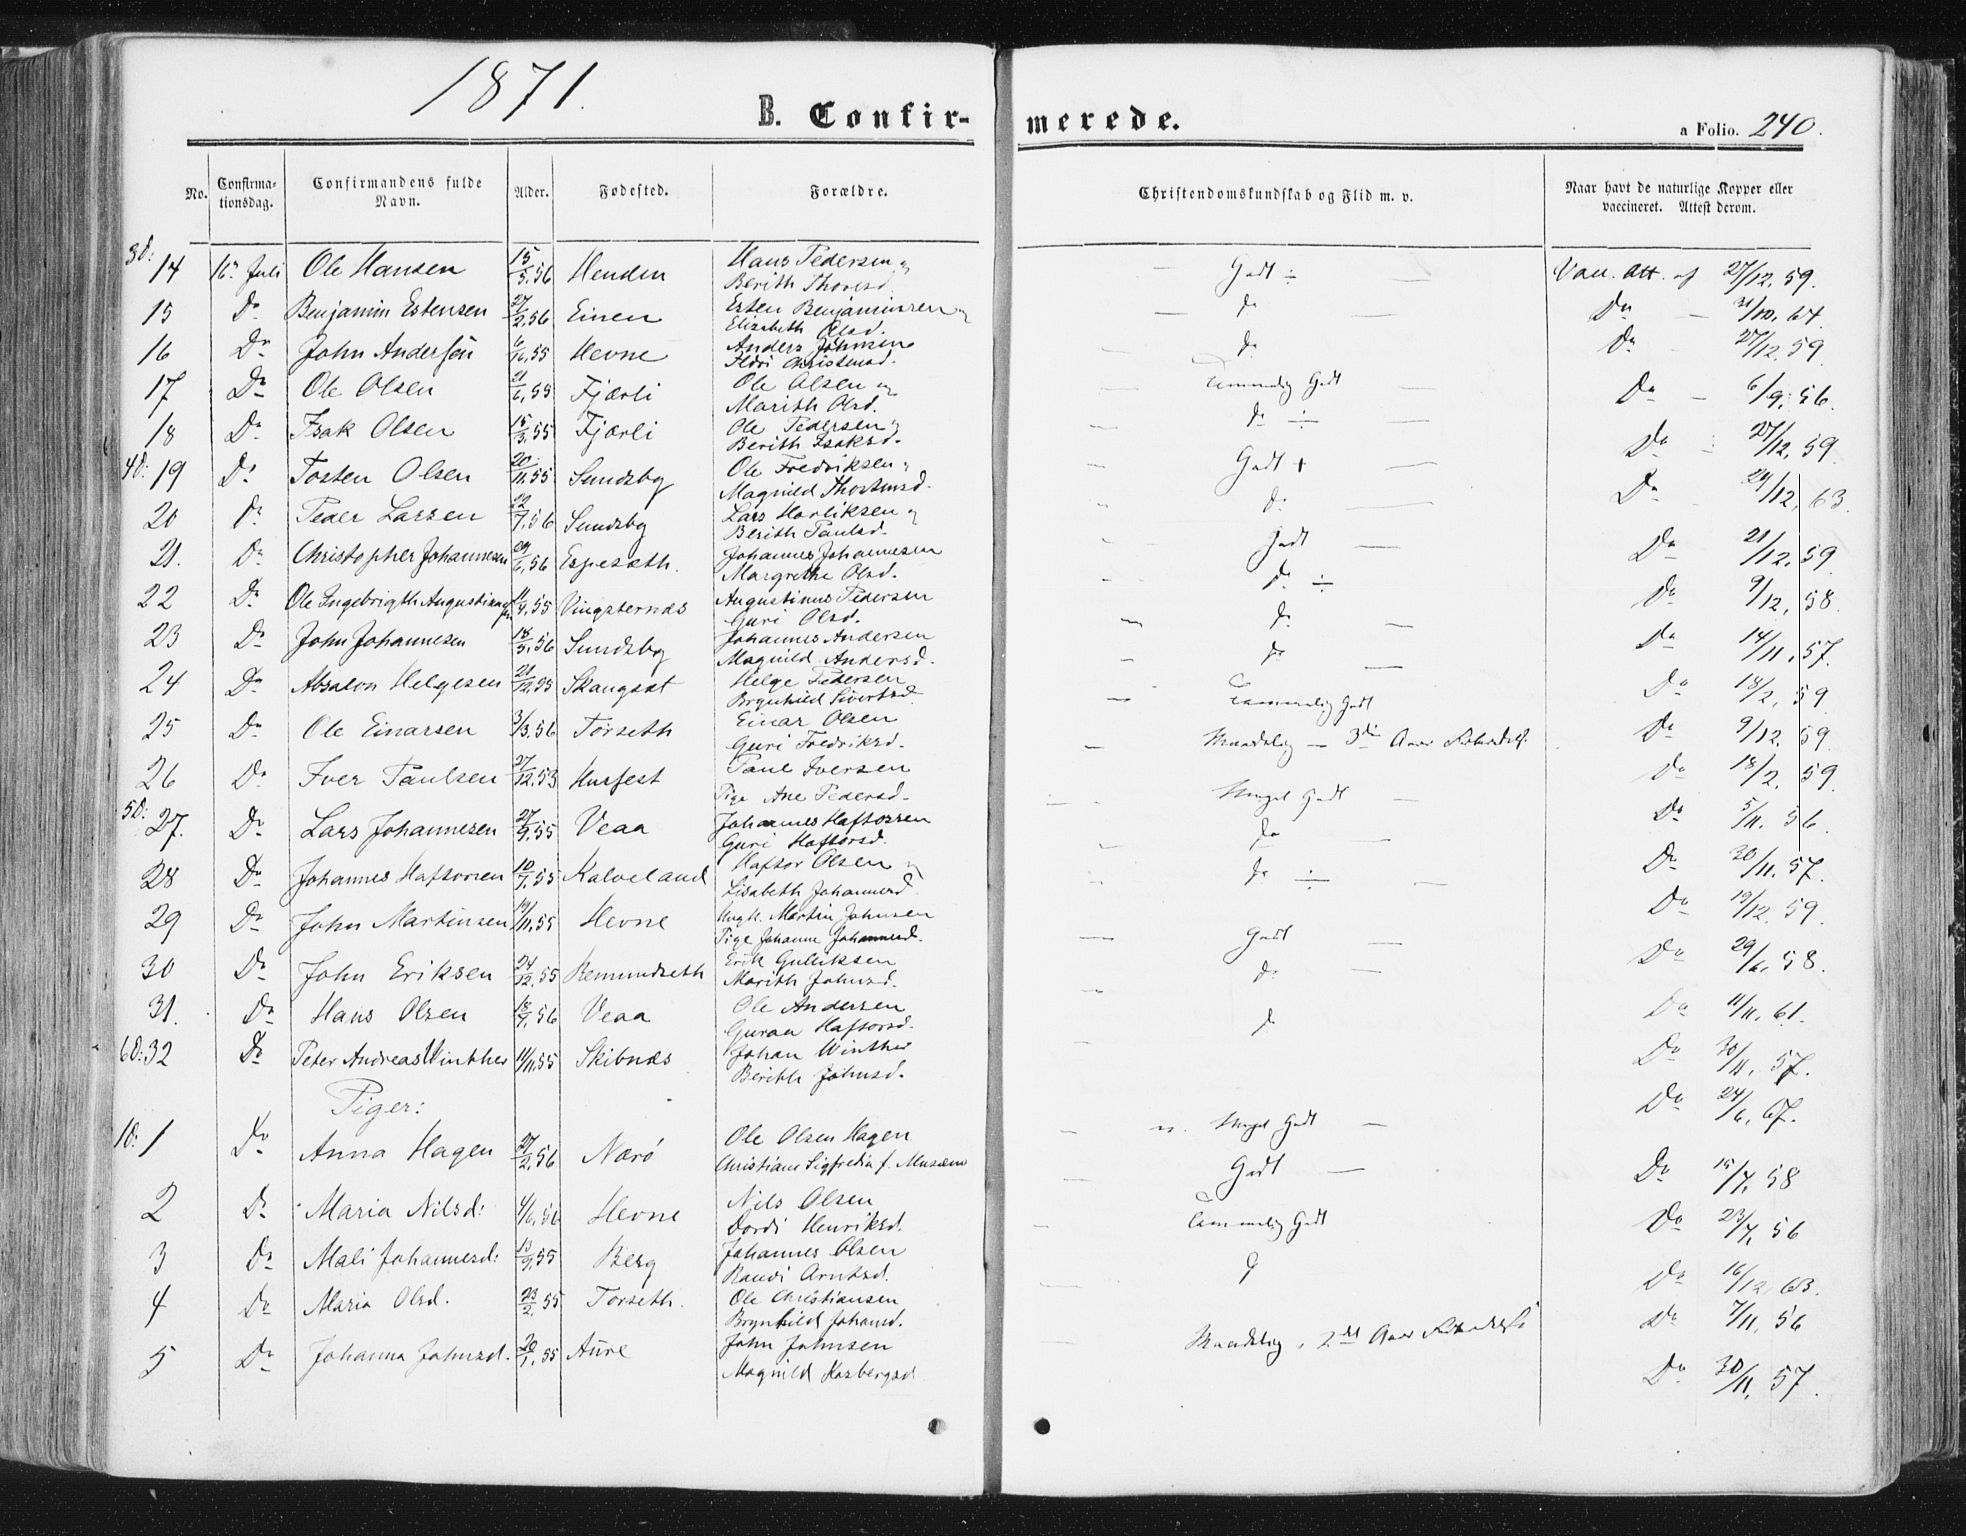 1871.
B. Confir-merede.
a Folio. 240.
No. Confirma-tionsdag. Confirmandens fulde Navn. Alder. Fødested. Forældre. Christendomskundskab og Flid m. v. Naar havt de naturlige Kopper eller vaccineret. Attest derom.
14 16. Juli Ole Hansen 15/5.56 Henden Hans Pedersen og Berith Thoresd. Godt ÷ Vacc. Att. af 27/12.59.
15 Do Benjamin Estensen 27/2.56 Einen Esten Benjaminsen og Elizabeth Olsd. do Do 31/10.64.
16 Do John Andersen 6/10.55 Hevne Anders Johnsen Ildri Christensd. do Do 27/12.59.
17 Do Ole Olsen 21/6.55 Fjærli Ole Olsen og Marith Olsd. Temmelig Godt Do 6/9.56.
18 Do Isak Olsen 15/3.55 Fjærli Ole Pedersen og Berith Isaksd. do ÷ Do 27/12.59.
19 Do Tosten Olsen 20/11.55 Sundsby Ole Fredriksen, Magnild Thostensd. Godt + Do 29/12.63.
20 Do Peder Larsen 22/7.56 Sundsby Lars Horliksen og Berith Paulsd. do Do 21/12.59
21. Do Christopher Johannesen 29/6.56 Espesæth. Johannes Johannesen Margrethe Olsd. Godt Do 9/12.58.
22 Do Ole Ingebrigth Augustinussen 11/4.55 Vingsternæs Augustinus Pedersen Guri Olsd. do ÷ Do 14/11.57.
23 Do John Johannesen 18/5.56 Sundsby Johannes Andersen Magnild Andersd. do Do 18/2.59
24 Do Absalon Helgesen 21/12.55 Skaugsæt Helge Pedersen Brynhild Sivertsd. do Do 9/12.59
25 Do Ole Einarsen 3/3.56 Torseth Einar Olsen Guri Fredriksd. Temmelig Godt Do 18/2.59
26 Do Iver Paulsen 27/12.53 Husfest Paul Iversen Pige Ane Pedersd. Maadelig — 3die Aars Forberedels. Do 5/11.56.
27. Do Lars Johannesen 27/9.55 Veaa Johannes Haftorsen Guri Haftorsd. Meget Godt Do 30/11.57.
28 Do Johannes Haftorsen 10/7.55 Kalveland Haftor Olsen og Lisabeth Johannesd. do Do 19/12.59.
29 Do John Martinsen 19/11.55 Hevne Ungk. Martin Johnsen Pige Johanne Johannesd. do ÷ Do 29/6.58.
30 Do John Eriksen 24/12.55 Remundseth Erik Gulliksen Marith Johnsd. Godt Do 11/11.61.
31. Do Hans Olsen 18/9.56 Veaa Ole Andersen Guroa Haftorsd. do Do 30/11.57.
32 Do Peter Andreas Winther 11/11.55 Skibnæs Johan Winther Berith Johnsd. do Do 24/6.67.
Piger:
1 Do Anna Hagen 27/2.56 Nærö Ole Olsen Hagen Christiane Sigfredia f. Musæus Meget Godt Do 15/7.58
2 Do Maria Nilsd: 4/6.56 Hevne Nils Olsen Dordi Henriksd. Godt Do 23/7.56
3 Do Mali Johannesd: 13/9.55 Berg Johannes Olsen Randi Arntsd. Temmelig Godt Do 16/12.63.
4 Do Maria Olsd. 23/2.55 Torseth. Ole Christiansen Brynhild Johansd. do Do 7/11.56
5 Do Johanna Johnsd. 20/1.55 Aure John Johnsen Magnild Kasbergsd. Maadelig, 2det Aars Forberedelse Do 30/11.57.